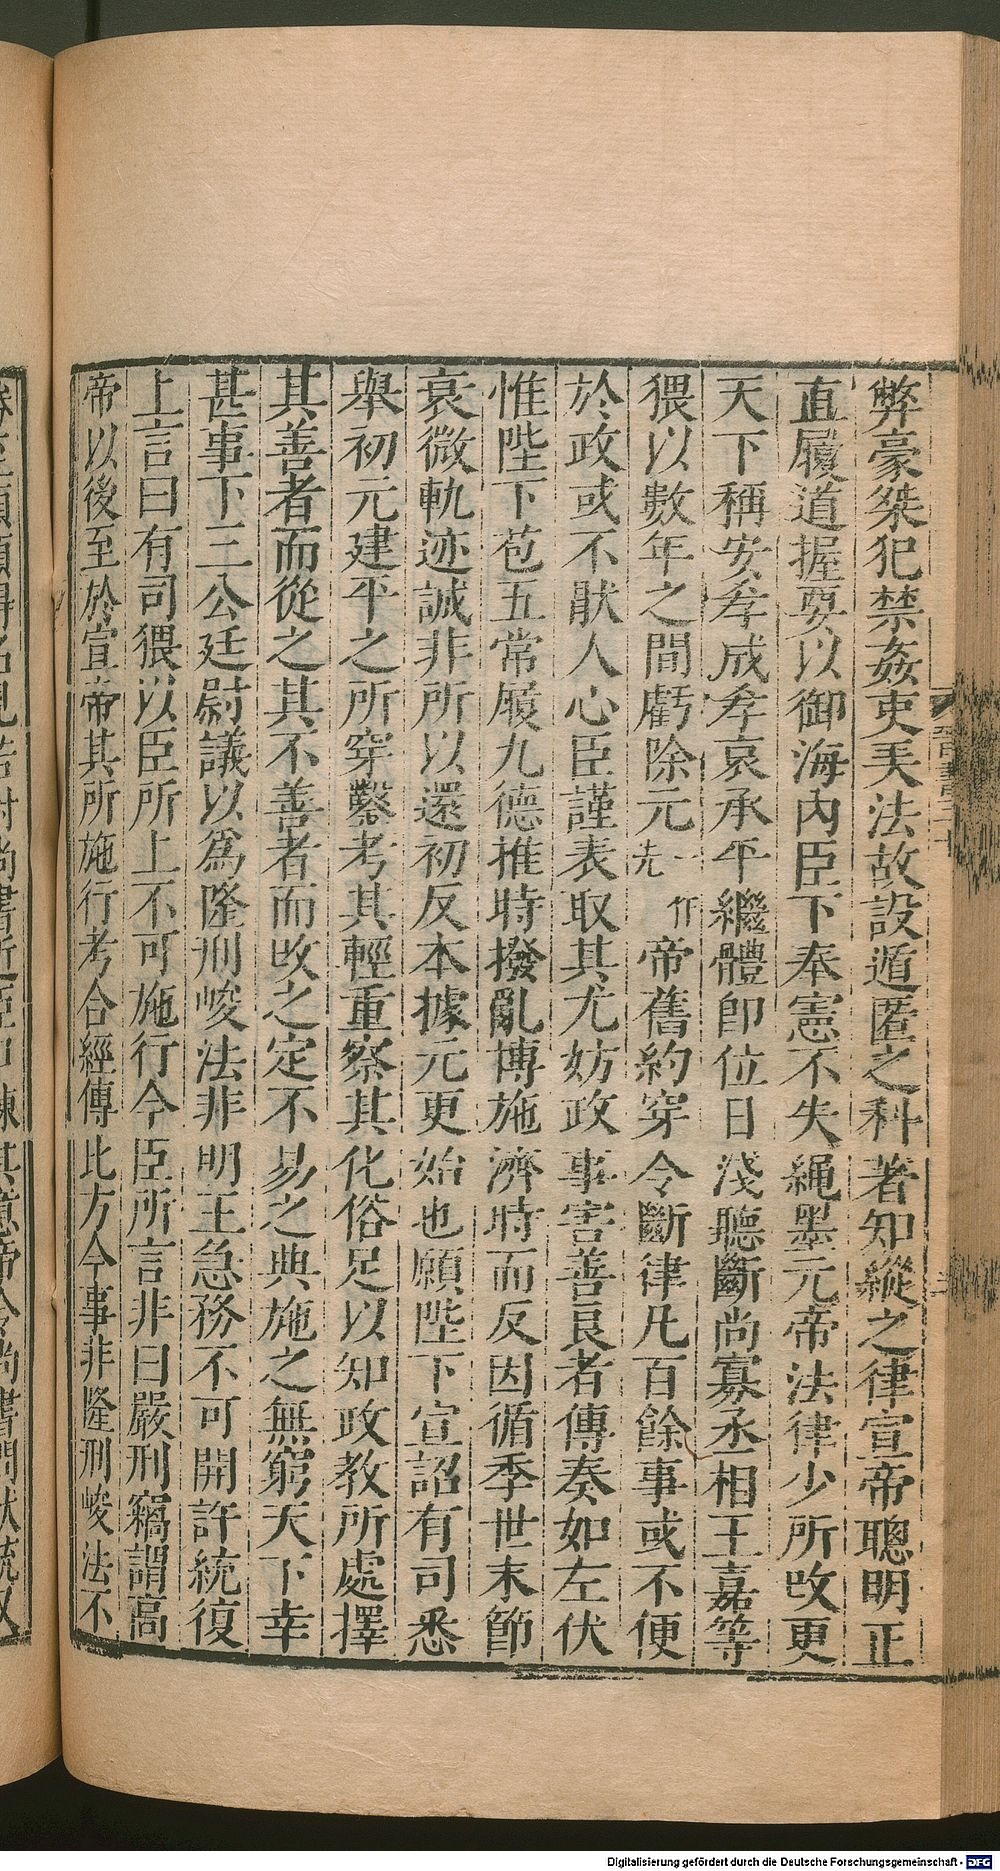 弊豪桀犯禁姦吏弄法故設遁匿之科著知縱之律宣帝聰明正
直履道握要以御海內臣下奉憲不失繩墨元帝法律少所改更
天下稱安孝成孝哀承平繼體卽位日淺聽斷尚寡丞相王嘉等
猥以數年之間虧除先帝舊約穿令斷律凡百餘事或不便
於政或不猒人心臣謹表取其尤妨政事害善良者傳奏如左伏
惟陛下苞五常履九德推時撥亂博施濟時而反因循季世末節
衰微軌迹誠非所以還初反本據元更始也願陛下宣詔有司悉
舉初元建平之所穿鑿考其輕重察其化俗足以知政教所處擇
其善者而從之其不善者而改之定不易之典施之無窮天下幸
甚事下三公廷尉議以爲隆刑峻法非明王急務不可開許統復
上言曰有司猥以臣所上不可施行今臣所言非曰嚴刑竊謂高
帝以後至於宣帝其所施行考合經傳比方今事非隆刑峻法不
Digitalisierung gefördert durch die Deutsche Forschungsgemeinschaft - DFG